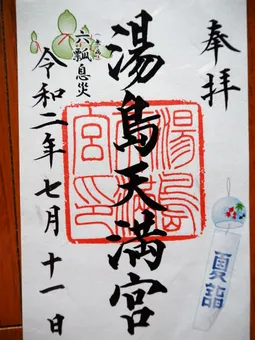 奉拝
湯島天満宮
六瓢息災
令和二年七月十一日
夏詣